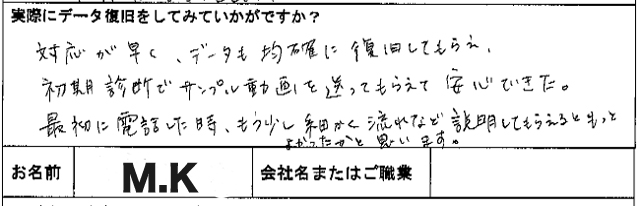 実際にデータ復旧をしてみていかがですか？
対応が早く、データも均確に復旧してもらえ、
初期診断でサンプル動画を送ってもらえて安心できた。
最初に電話した時、もう少し細かく流れなど説明してもらえるともっと
よかったかと思います。
お名前 M.K 会社名またはご職業